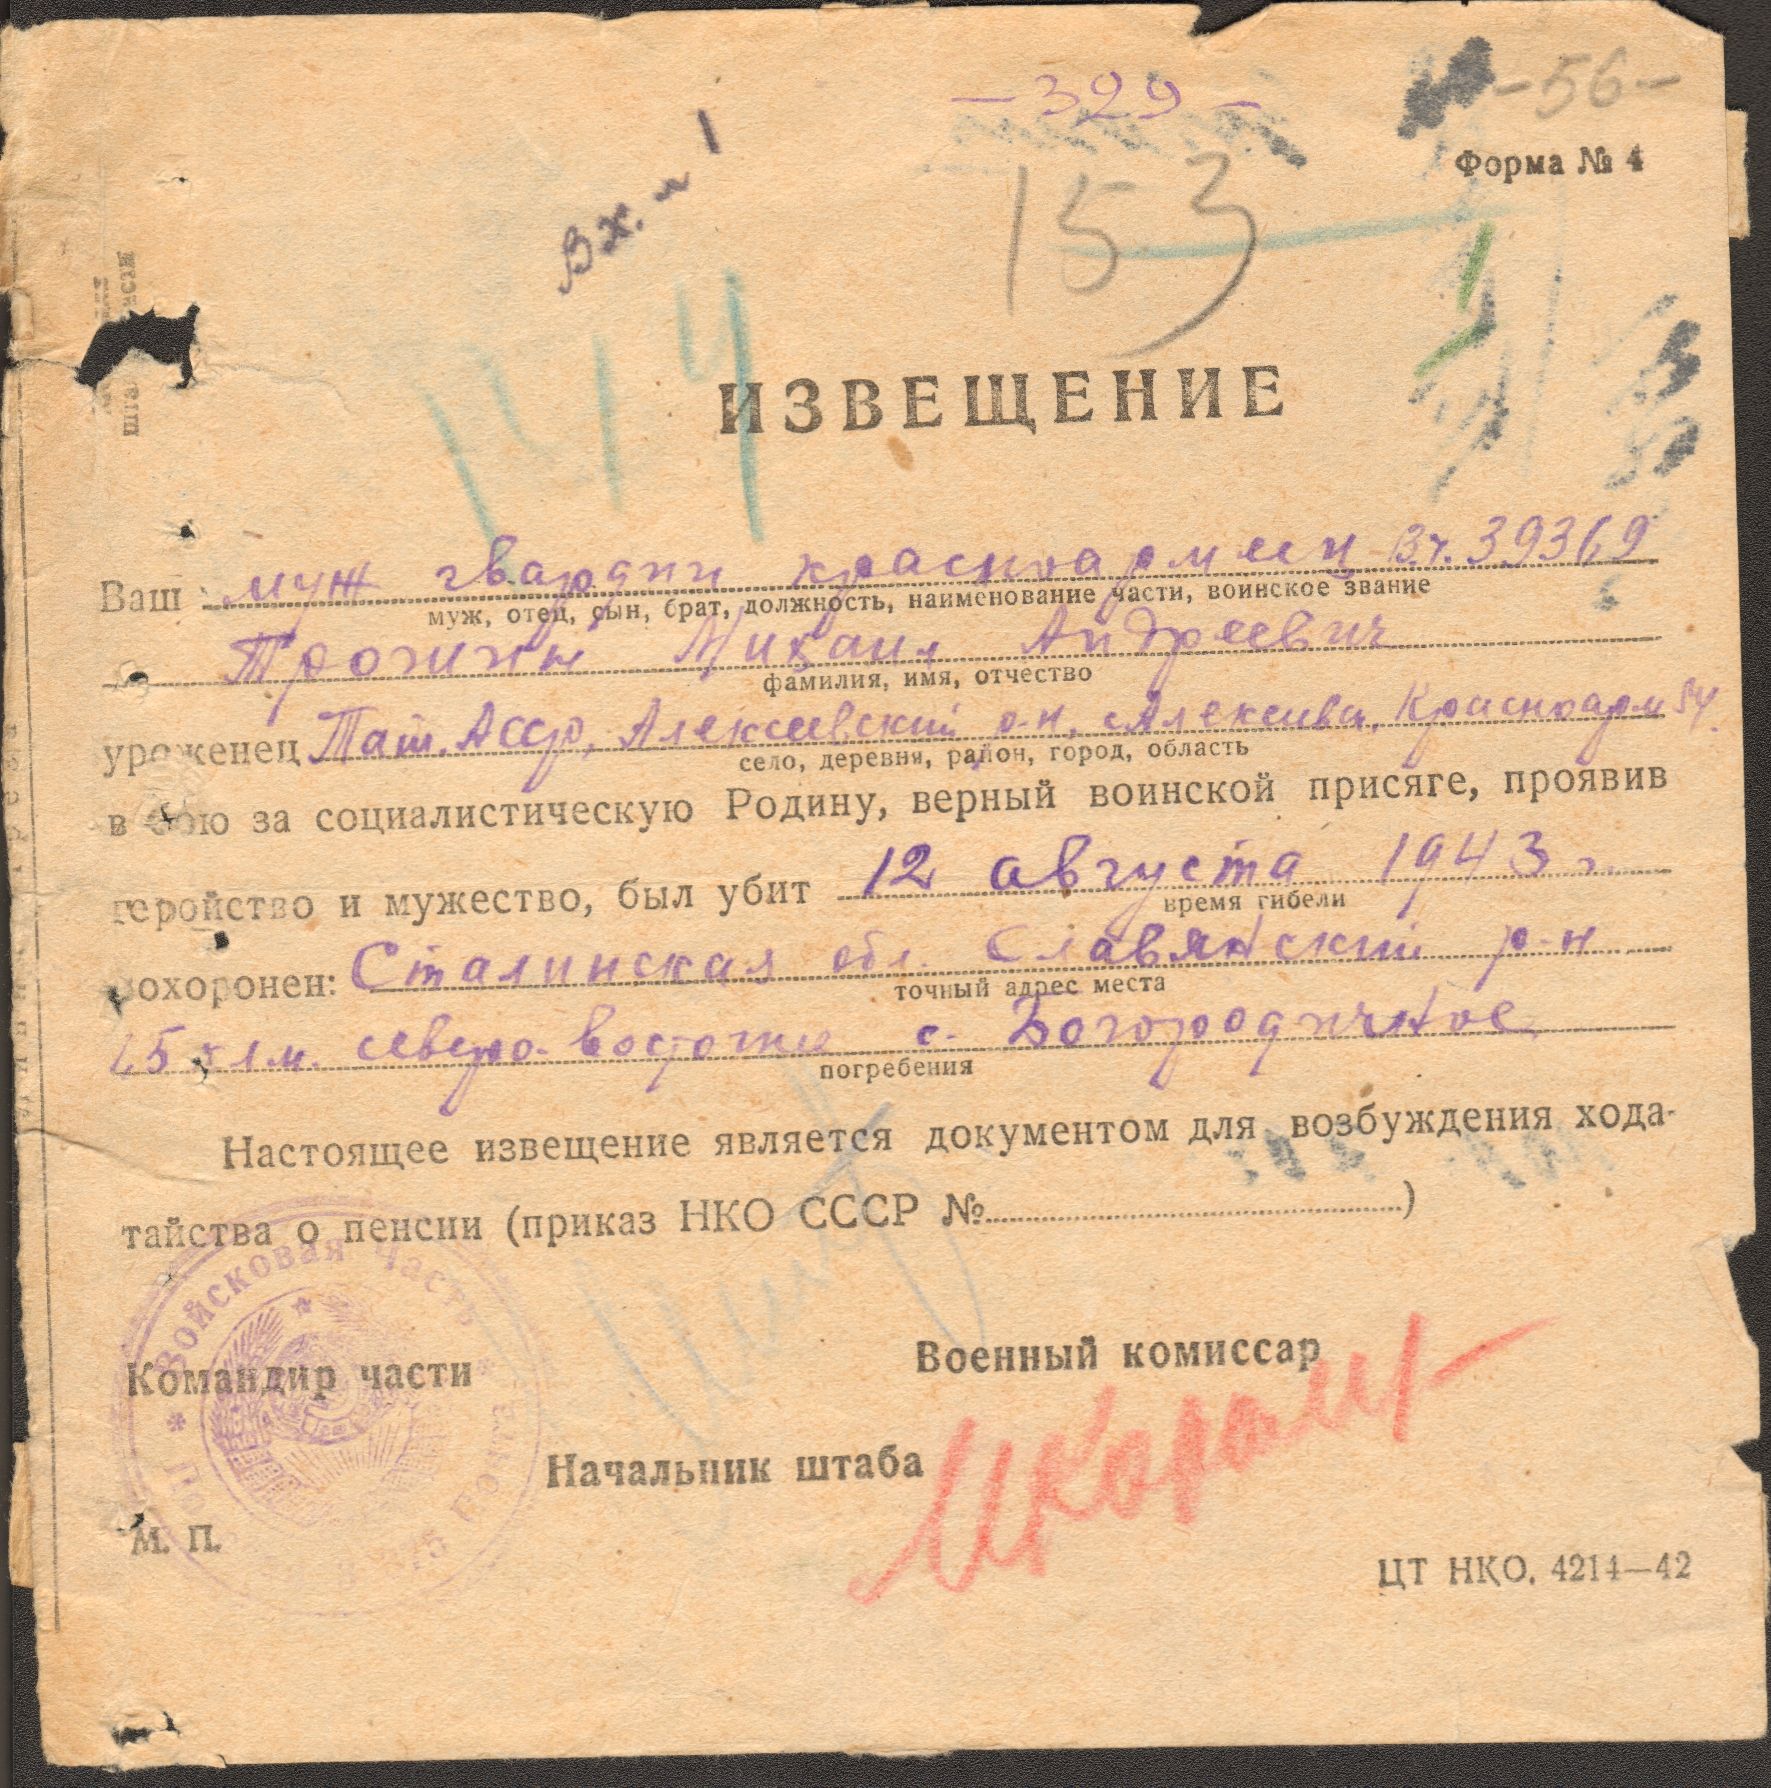 - 329 -
- 56 -
Форма № 4
Вх.
153
144
ИЗВЕЩЕНИЕ
Ваш муж гвардии красноармеец в.ч. 39369
муж, отец, сын, брат, должность, наименование части, воинское звание
Трошин Михаил Андреевич
фамилия, имя, отчество
уроженец Тат. Асср, Алексеевский р-н, Красноарм 54.
село, деревня, район, город, область
в бою за социалистическую Родину, верный воинской присяге, проявив
геройство и мужество, был убит 12 августа 1943 г.
время гибели
похоронен: Сталинская обл. Славянский р-н
точный адрес места
северо-восточнее с. Богородичное
погребения
Настоящее извещение является документом для возбуждения хода-
тайства о пенсии (приказ НКО СССР №)
Войсковая Часть
Командир части
Военный комиссар
Начальник штаба
М. П.
ЦТ НКО. 4214—42